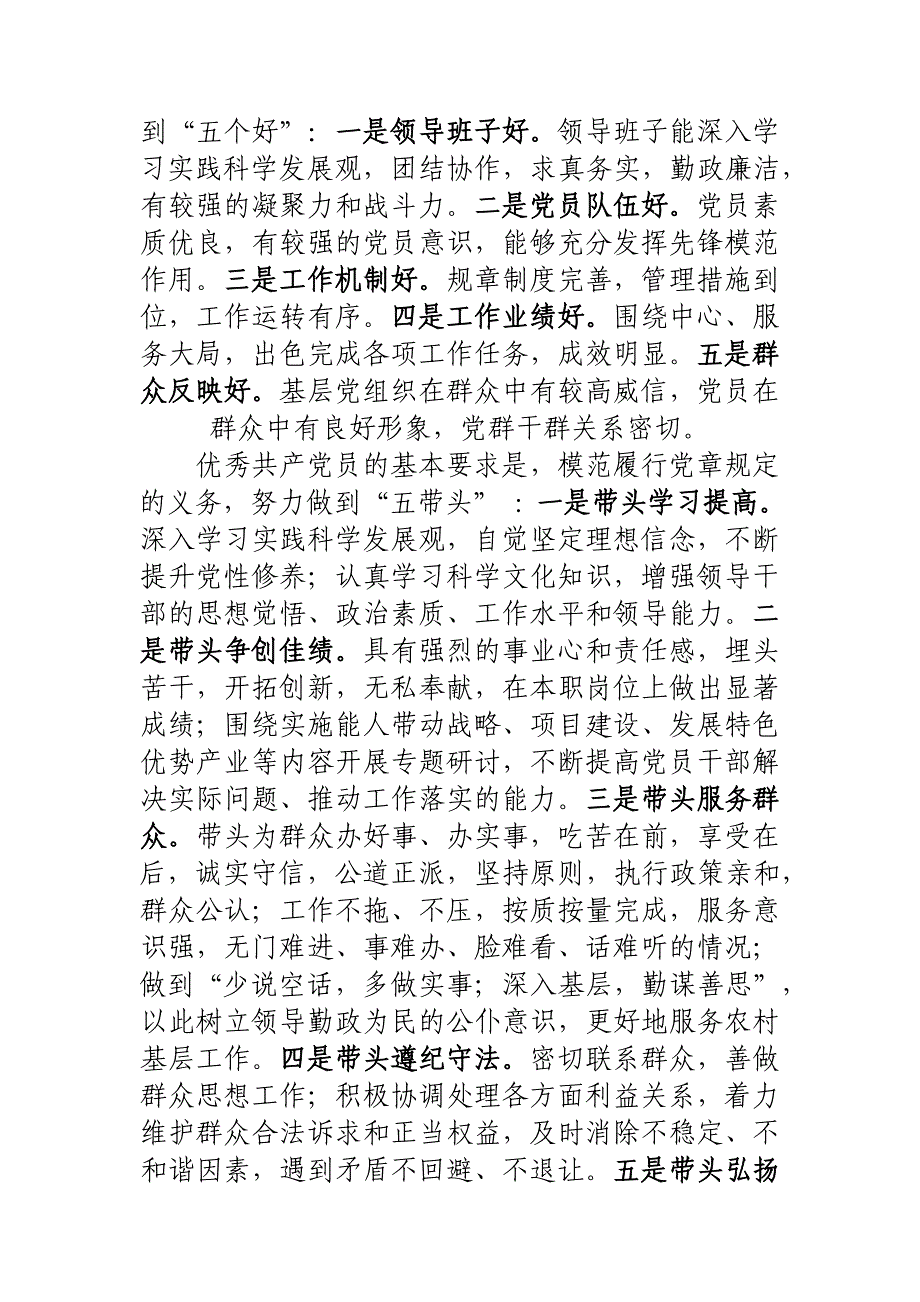 到“五个好”：一是领导班子好。领导班子能深入学
习实践科学发展观，团结协作，求真务实，勤政廉洁，
有较强的凝聚力和战斗力。二是党员队伍好。党员素
质优良，有较强的党员意识，能够充分发挥先锋模范
作用。三是工作机制好。规章制度完善，管理措施到
位，工作运转有序。四是工作业绩好。围绕中心、服
务大局，出色完成各项工作任务，成效明显。五是群
众反映好。基层党组织在群众中有较高威信，党员在
群众中有良好形象，党群干群关系密切。
优秀共产党员的基本要求是，模范履行党章规定
的义务，努力做到“五带头” ：一是带头学习提高。
深入学习实践科学发展观，自觉坚定理想信念，不断
提升党性修养；认真学习科学文化知识，增强领导干
部的思想觉悟、政治素质、工作水平和领导能力。二
是带头争创佳绩。具有强烈的事业心和责任感，埋头
苦干，开拓创新，无私奉献，在本职岗位上做出显著
成绩；围绕实施能人带动战略、项目建设、发展特色
优势产业等内容开展专题研讨，不断提高党员干部解
决实际问题、推动工作落实的能力。三是带头服务群
众。带头为群众办好事、办实事，吃苦在前，享受在
后，诚实守信，公道正派，坚持原则，执行政策亲和，
群众公认；工作不拖、不压，按质按量完成，服务意
识强，无门难进、事难办、脸难看、话难听的情况；
做到“少说空话，多做实事；深入基层，勤谋善思”，
以此树立领导勤政为民的公仆意识，更好地服务农村
基层工作。四是带头遵纪守法。密切联系群众，善做
群众思想工作；积极协调处理各方面利益关系，着力
维护群众合法诉求和正当权益，及时消除不稳定、不
和谐因素，遇到矛盾不回避、不退让。五是带头弘扬